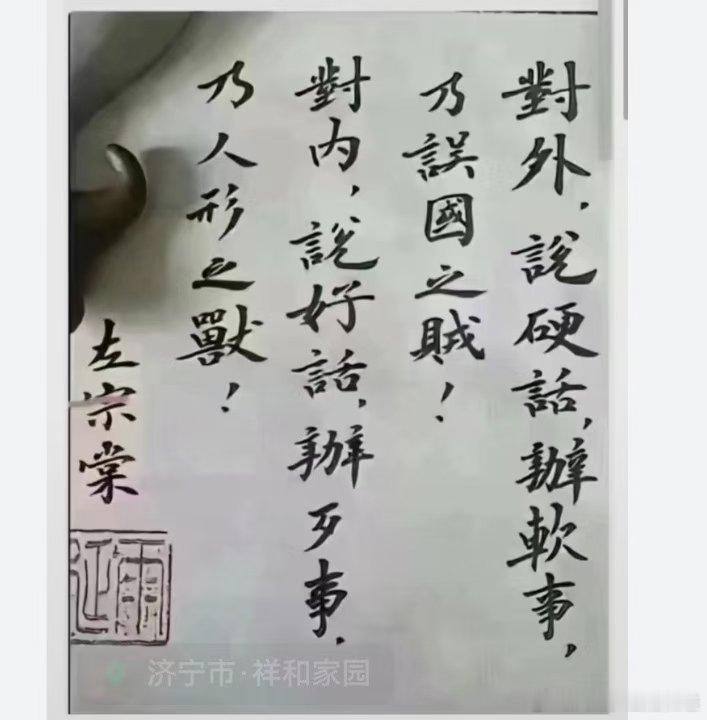 對外，說硬話，辦軟事，
乃誤國之賊！
對內，說好話，辦歹事，
乃人形之獸！
左宗棠
济宁市·祥和家园